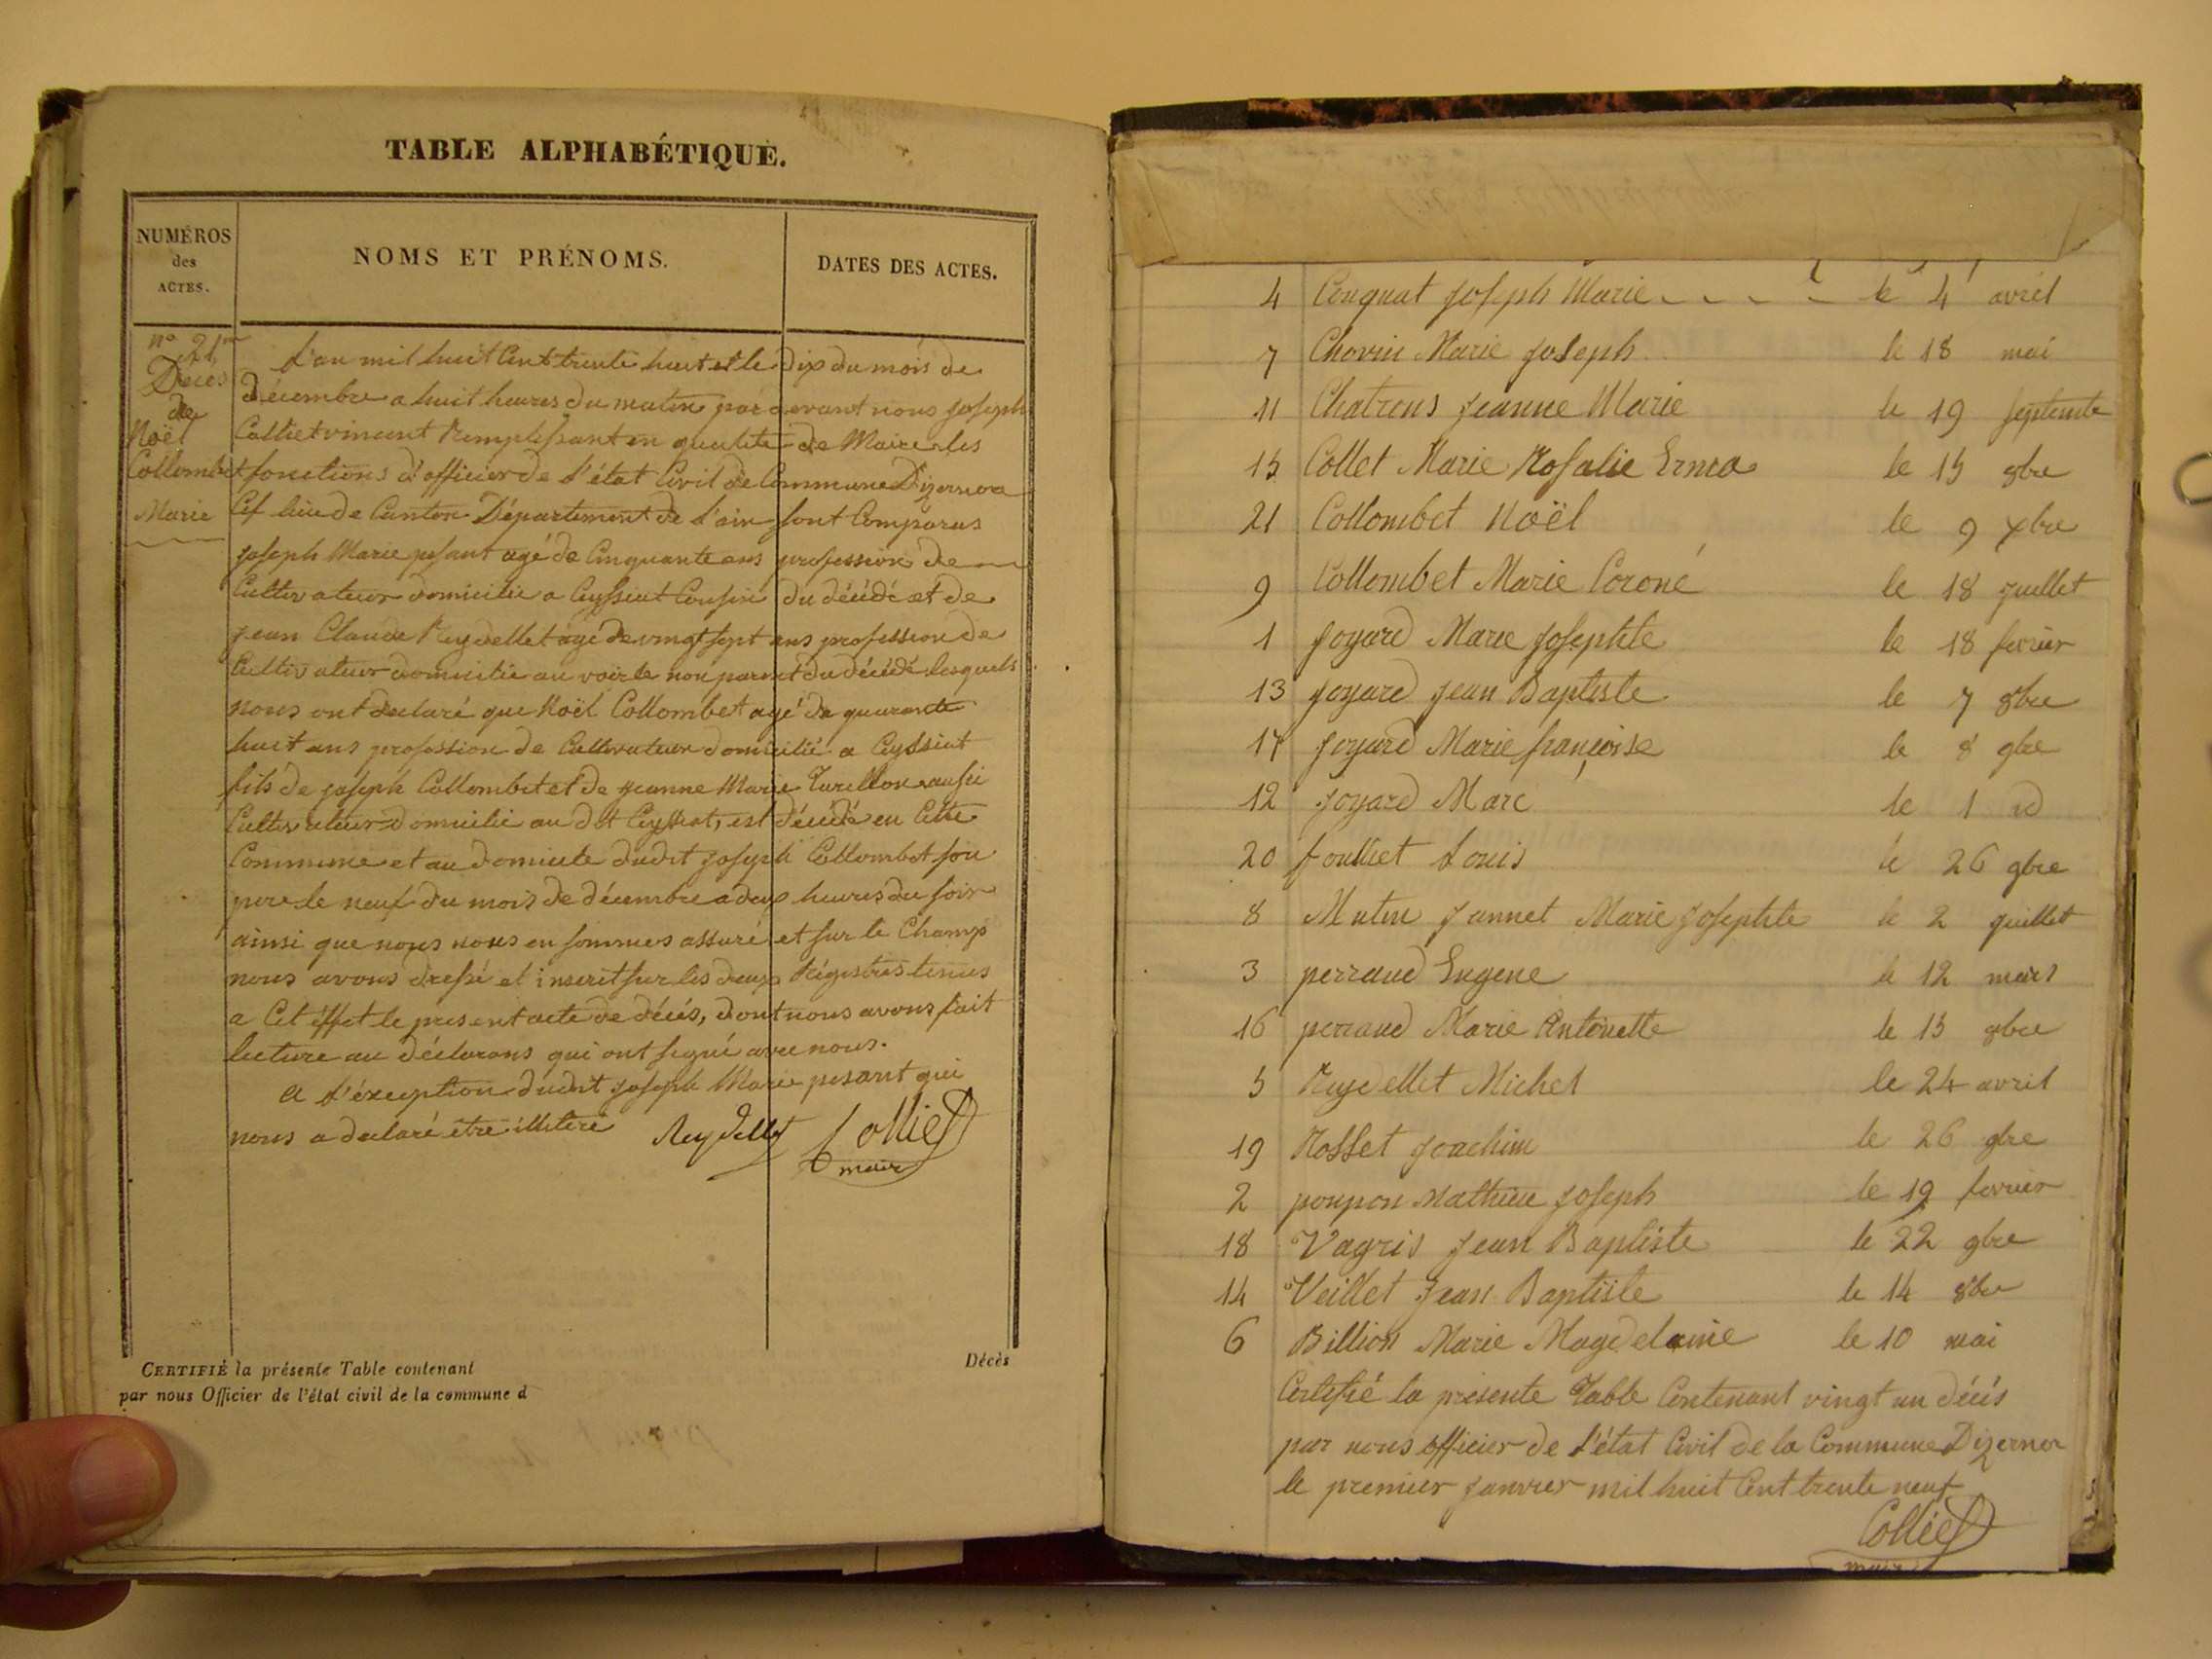 TABLE ALPHABÉTIQUE.
NUMÉROS
des
ACTES.
NOMS ET PRÉNOMS.
DATES DES ACTES.
nº 21
Décès
de
Noël
Collombet
Marie
L'an mil huit Cent trente huit et le dix du mois de
Décembre a huit heures du matin par devant nous joseph
Colliet vincent Remplissant en qualité de Maire les
fonctions d'officier de l'état Civil de Commune Dizernore
Cef lieu de Canton Département de l'ain sont Comparus
joseph Marie pesant agé de Cinquante ans profession de
Cultivateur domicilié a Ceyssiat Cousin du décédé et de
jean Claude Reydellet agé de vingt sept ans profession de
Cultivateur domicilié au voirle non parent du décédé lesquels
nous ont declaré que Noël Collombet agé de quarante
huit ans profession de Cultivateur domicilié a Ceyssiat
fils de joseph Collombet et de jeanne Marie Turillon aussi
Cultivateur domicilié au dit Ceyssiat, est décédé en Cette
Commune et au domicile dudit joseph Collombet son
pere le neuf du mois de décembre a deux heures du soir
ainsi que nous nous en sommes assuré et sur le Champs
nous avons dressé et inscrit sur les deux Régistres tenus
a Cet éffet le present acte de décès, dont nous avons fait
lecture au déclarans qui ont signé avec nous.
a l'éxeption dudit joseph Marie pesant qui
nous a declaré être illiteré Reydellet Colliet
maire
CERTIFIÉ la présente Table contenant
Décès
par nous Officier de l'état civil de la commune d
4 Conquat joseph Marie - - - - le 4 avril
7 Chovin Marie joseph le 18 mai
11 Chatrons jeanne Marie le 19 septembre
15 Collet Marie Rosalie Erma le 15 8bre
21 Collombet Noël le 9 xbre
9 Collombet Marie Coroné le 18 juillet
1 joyard Marie josephte le 18 fevrier
13 joyard jean Baptiste le 7 8bre
17 joyard Marie françoise le 8 9bre
12 joyard Marc le 1 id
20 foulliet Louis le 26 9bre
8 Mutin jannet Marie josephte le 2 juillet
3 perraud Eugene le 12 mars
16 perraud Marie Antoinette le 15 8bre
5 Reydellet Michel le 24 avril
19 Rosset joachim le 26 9bre
2 poupon Mathieu joseph le 19 fevrier
18 Vagris jean Baptiste le 22 9bre
14 Veillet jean Baptiste le 14 8bre
6 Billion Marie Magdelaine le 10 mai
Certifié la présente Table Contenant vingt un décès
par nous officier de l'état Civil de la Commune Dizernor
le premier janvier mil huit Cent trente neuf
Colliet
maire